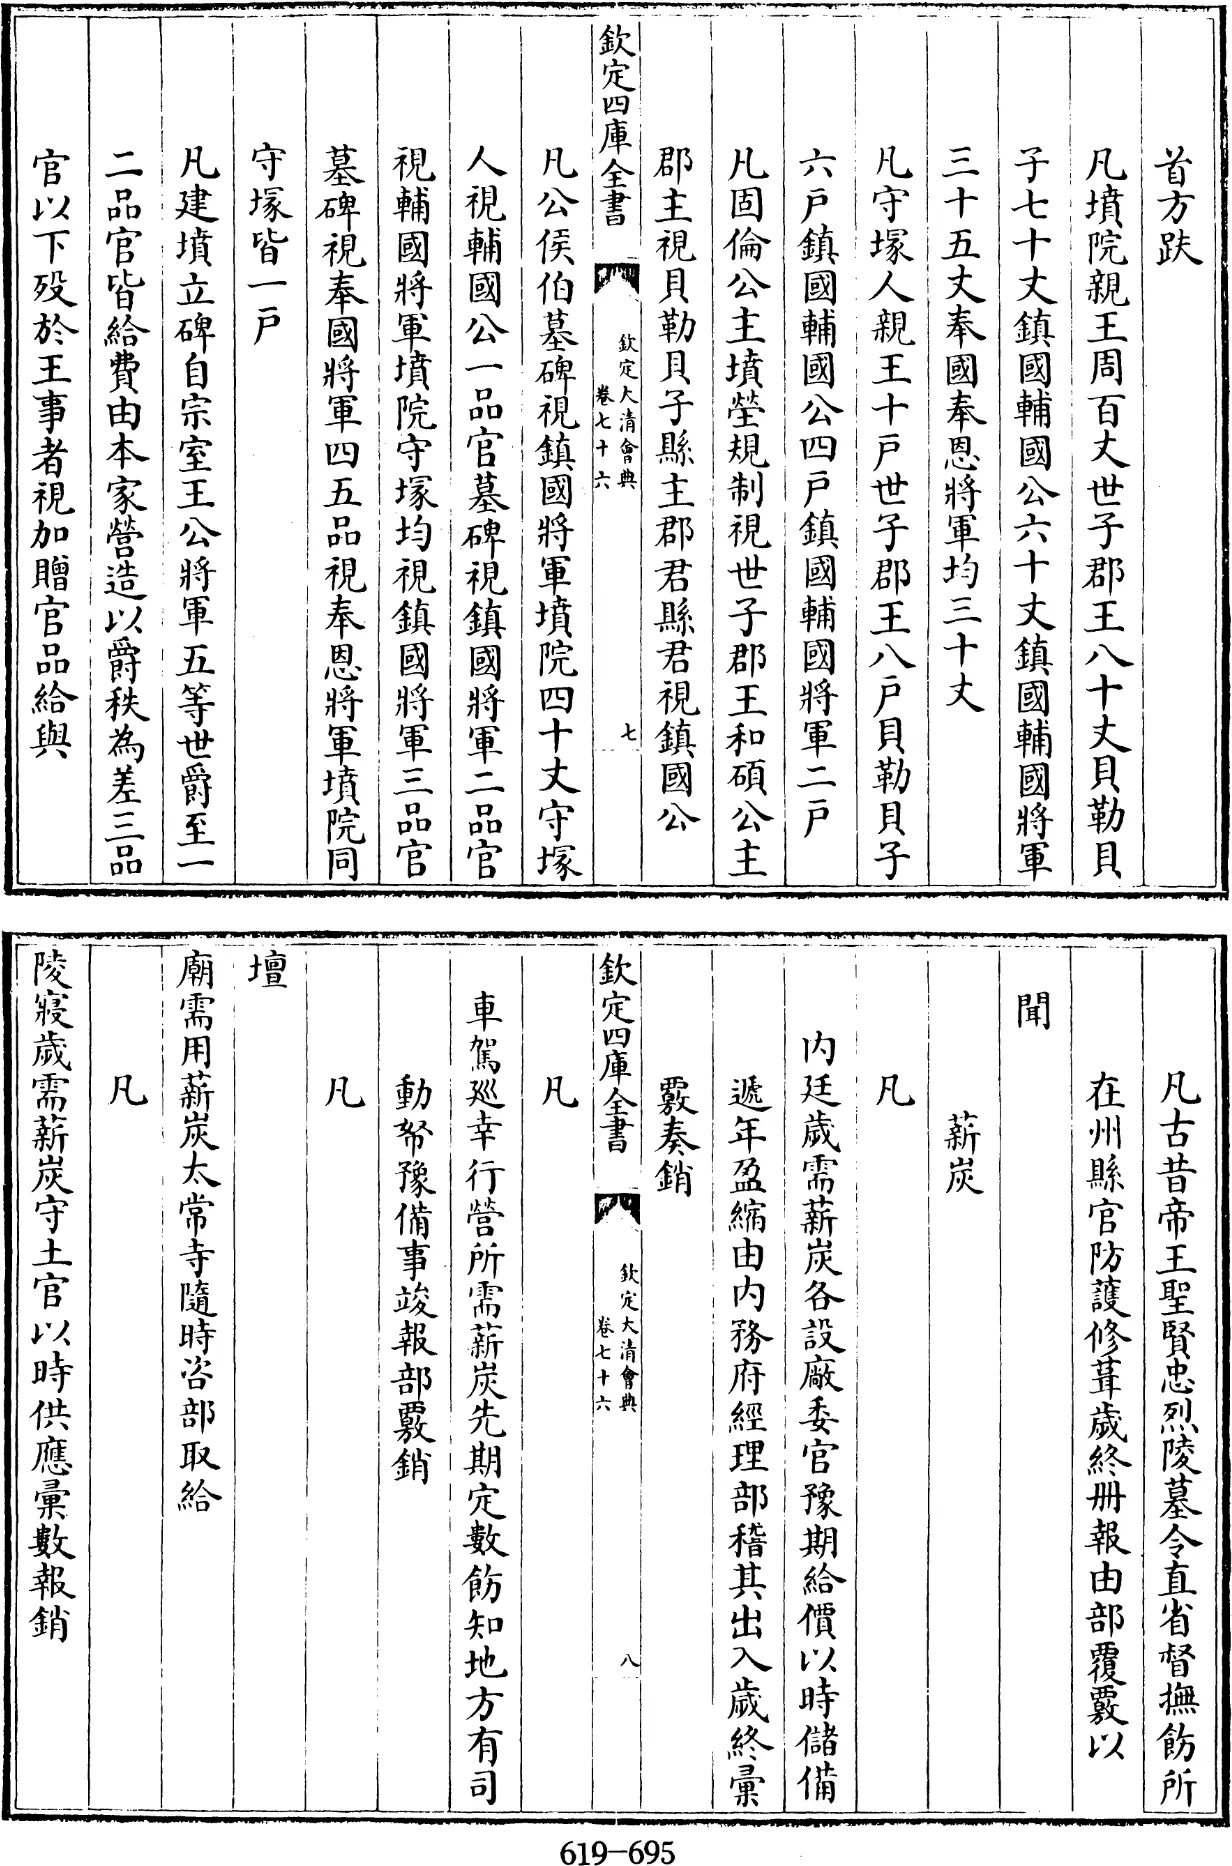 首方趺
凡墳院親王周百丈世子郡王八十丈貝勒貝
子七十丈鎮國輔國公六十丈鎮國輔國將軍
三十五丈奉國奉恩將軍均三十丈
凡守塚人親王十戸世子郡王八戸貝勒貝子
六戸鎮國輔國公四戸鎮國輔國將軍二戸
凡固倫公主墳塋規制視世子郡王和碩公主
郡主視貝勒貝子縣主郡君縣君視鎮國公
欽定四庫全書
欽定大清會典
卷七十六
七
凡公侯伯墓碑視鎮國將軍墳院四十丈守塚
人視輔國公一品官墓碑視鎮國將軍二品官
視輔國將軍墳院守塚均視鎮國將軍三品官
墓碑視奉國將軍四五品視奉恩將軍墳院同
守塚皆一戸
凡建墳立碑自宗室王公將軍五等世爵至一
二品官皆給費由本家營造以爵秩為差三品
官以下歿於王事者視加贈官品給與
凡古昔帝王聖賢忠烈陵墓令直省督撫飭所
在州縣官防護修葺歲終册報由部覆覈以
聞
薪炭
凡
内廷歲需薪炭各設廠委官豫期給價以時儲備
遞年盈縮由内務府經理部稽其出入歲終彙
覈奏銷
欽定四庫全書
欽定大清會典
卷七十六
八
凡
車駕廵幸行營所需薪炭先期定數飭知地方有司
動帑豫備事竣報部覈銷
凡
壇
廟需用薪炭太常寺隨時咨部取給
凡
陵寢歲需薪炭守土官以時供應彙數報銷
619-695